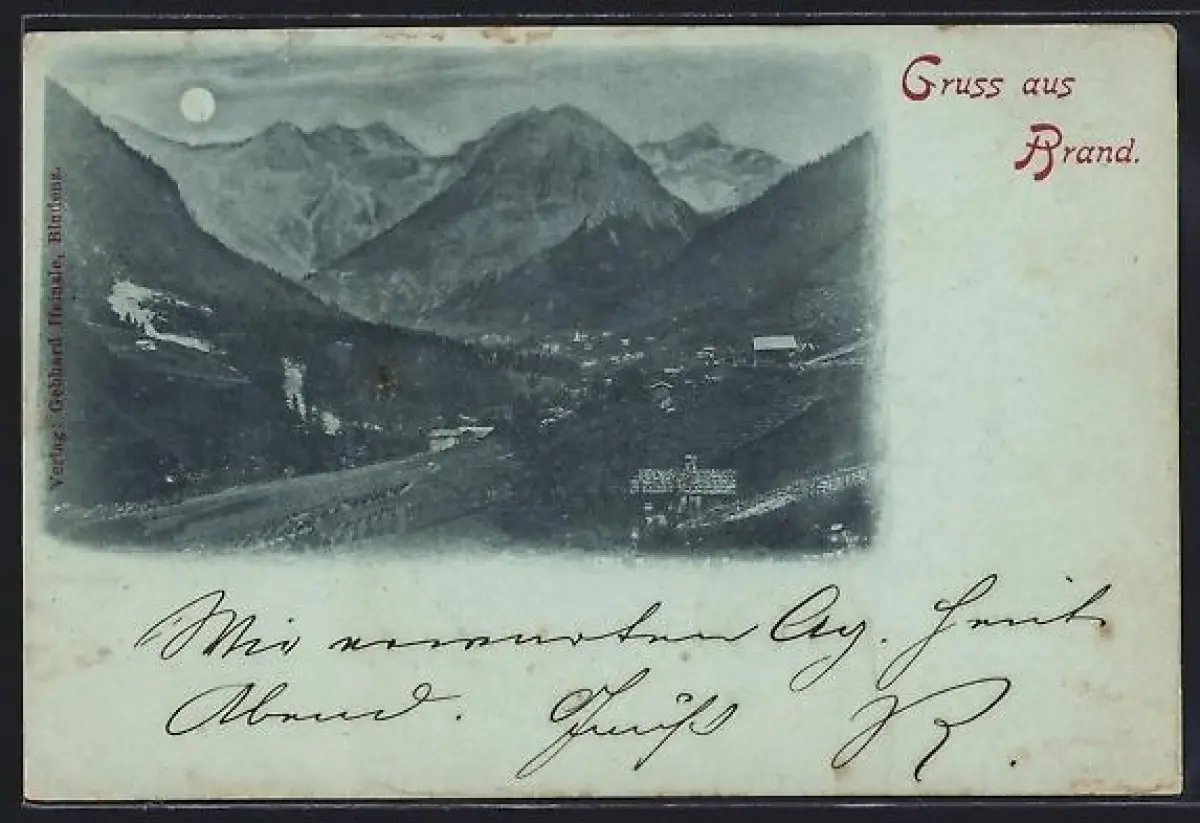 Gruss aus
Brand.
Verlag: Gebhard Heinzle, Bludenz.
Wir erwarten Ag. heute
Abend. Gruß R.